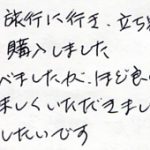 旅行に行き、立ち
購入しました
べましたが、ほど良
味しくいただきまし
したいです